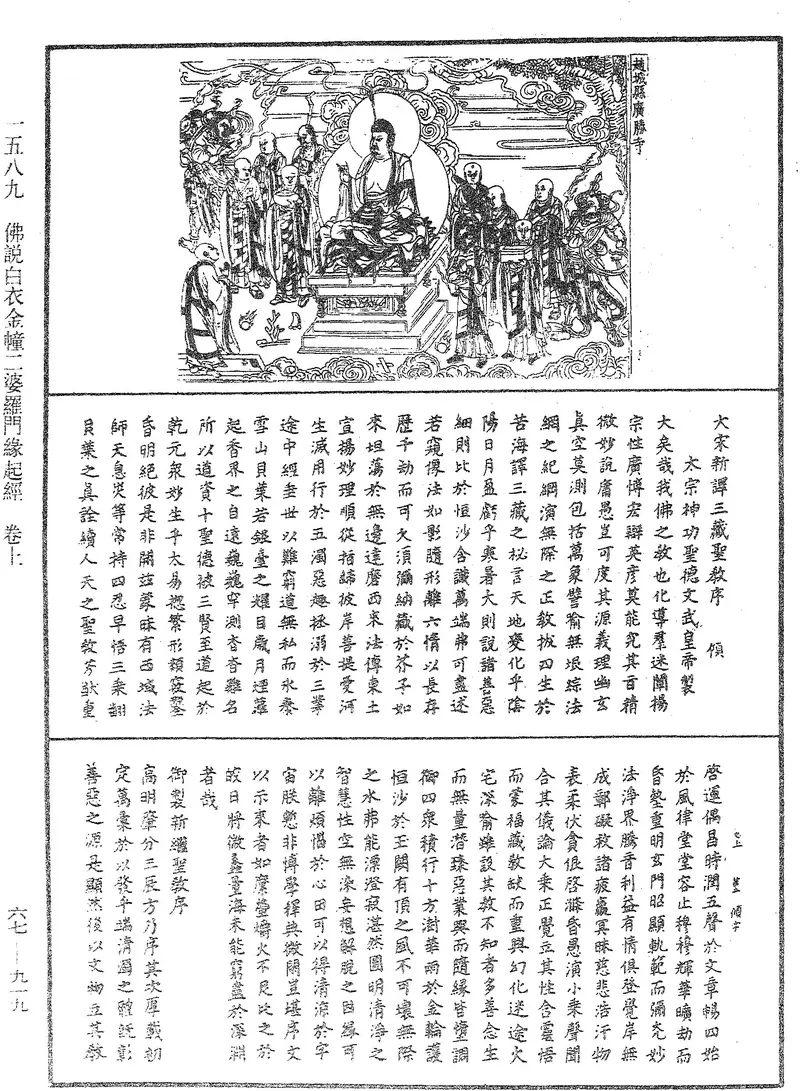 趙城縣廣勝寺
大宋新譯三藏聖教序　傾
太宗神功聖德文武皇帝製
大矣哉我佛之教也化導羣迷闡揚
宗性廣博宏辯英彦莫能究其旨精
微妙説庸愚豈可度其源義理幽玄
真空莫測包括萬象譬喻無垠綜法
網之紀綱演無際之正教拔四生於
苦海譯三藏之秘言天地變化乎陰
陽日月盈虧乎寒暑大則説諸善惡
細則比於恒沙含識萬端弗可盡述
若窺像法如影隨形離六情以長存
歷千劫而可久須彌納藏於芥子如
來坦蕩於無邊達磨西來法傳東土
宣揚妙理順從指歸彼岸菩提愛河
生滅用行於五濁惡趣拯溺於三業
途中經垂世以難窮道無私而永泰
雪山貝葉若銀臺之耀目歲月煙蘿
起香界之自遠巍巍罕測杳杳難名
所以道資十聖德被三賢至道起於
乾元衆妙生乎太易揔繁形類竅鑿
昏明絶彼是非開兹蒙昧有西域法
師天息災等常持四忍早悟三乘翻
貝葉之真詮續人天之聖教芳猷重
啓運偶昌時潤五聲於文章暢四始
於風律堂堂容止穆穆輝華曠劫而
昏墊重明玄門昭顯軌範而彌光妙
法淨界騰音利益有情俱登覺岸無
成鄣礙救諸疲羸冥昧慈悲浩汗物
表柔伏貪佷啓滌昏愚演小乘聲聞
合其儀論大乘正覺立其性含靈悟
而蒙福藏教缺而重興幻化迷途火
宅深喻雖設其教不知者多善念生
而無量潛臻惡業興而隨緣皆墮調
御四衆積行十方澍華雨於金輪護
恒沙於玉闕有頂之風不可壞無際
之水弗能漂澄寂湛然圓明清淨之
智慧性空無染妄想解脱之因緣可
以離煩惱於心田可以得清涼於宇
宙朕慙非博學釋典微閑豈堪序文
以示來者如螢爝火不足比之於
皎日將微蠡量海未能窮盡於深淵
者哉
御製新繼聖教序
高明肇分三辰方乃序其次厚載初
定萬彙於以發乎端清濁之體既彰
善惡之源是顯然後以文物立其教
一五八九　佛説白衣金幢二婆羅門緣起經　卷上
六七—九一九